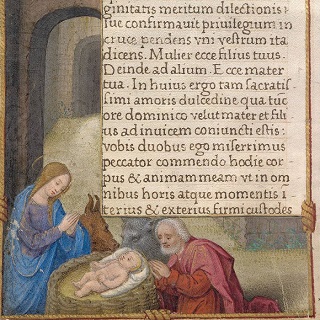 ginitatis meritum dilectionis i
liue confirmauit priuilegium in
cruce pendens vni vestrum ita
dicens. Mulier ecce filius tuus.
Deinde ad alium. Ecce mater
tua. In huius ergo tam sacratis-
simi amoris dulcedine qua tūc
ore dominico velut mater et fili
us adinuicem coniuncti estis:
vobis duobus ego miserrimus
peccator commendo hodie cor-
pus & animam meam vt in om
nibus horis atque momentis i
terius & exterius firmi custodes